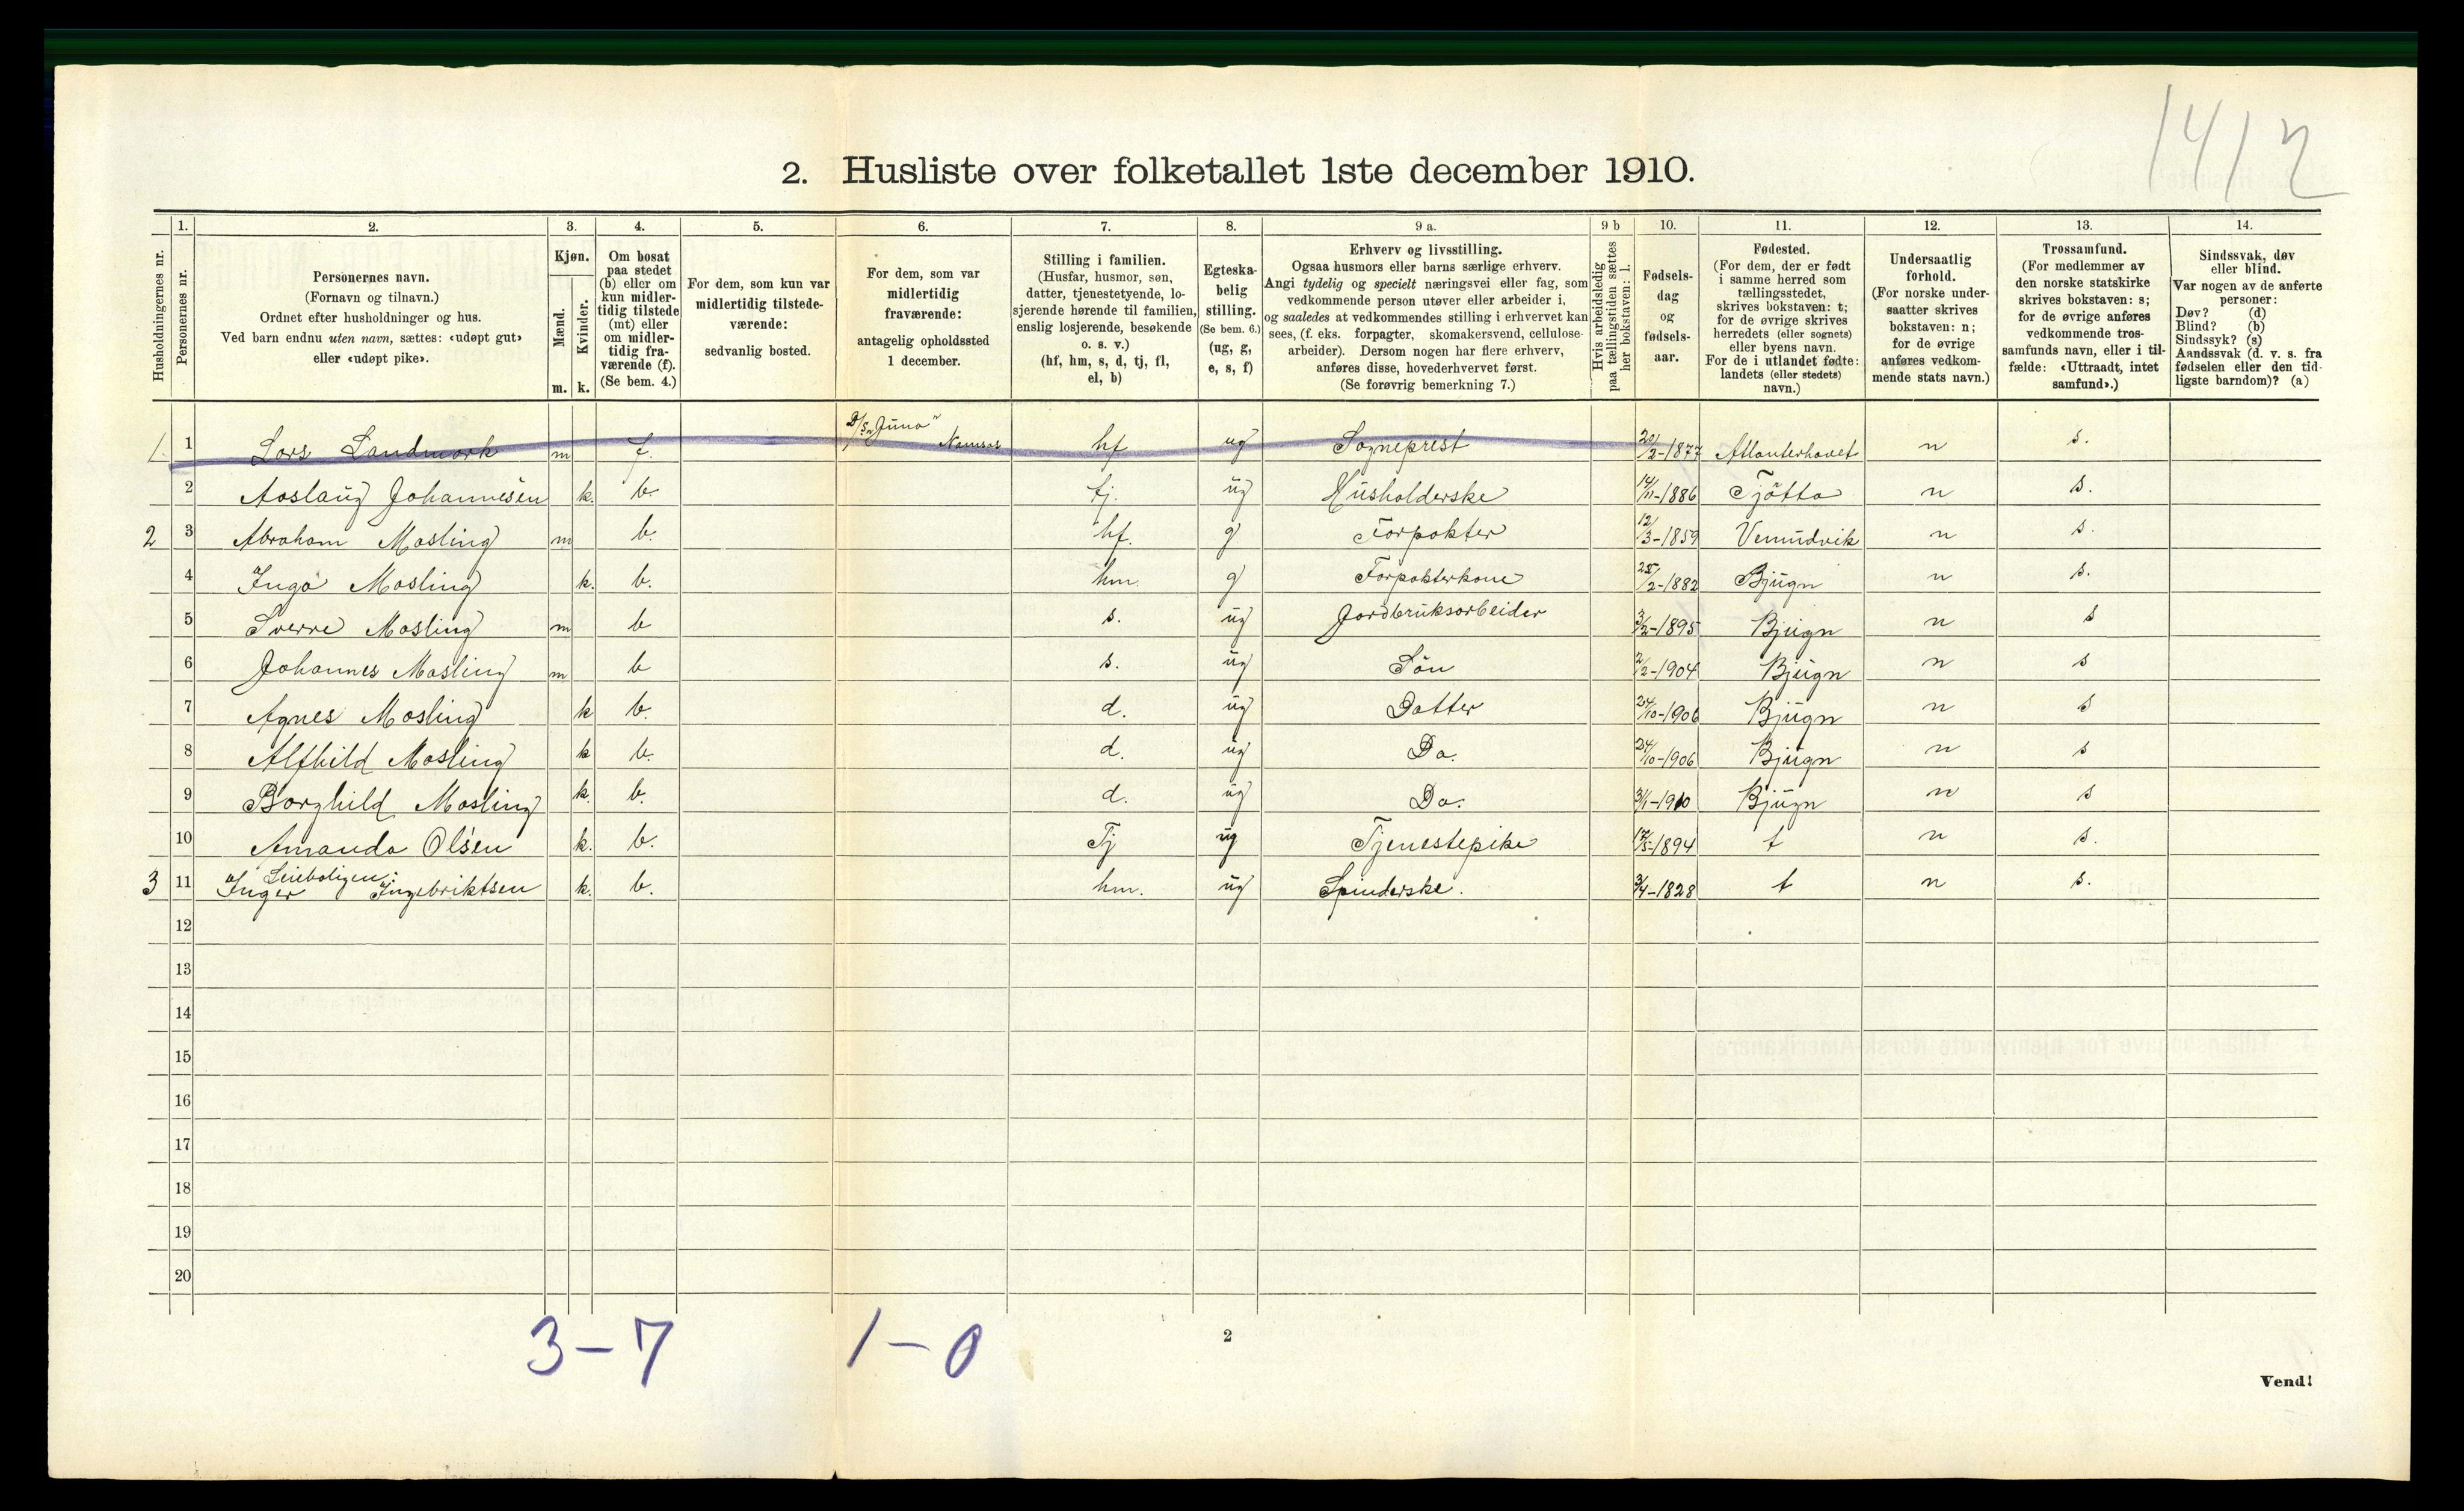 1412
2. Husliste over folketallet 1ste december 1910.
Husholdningernes nr.
1. Personernes nr.
2. Personernes navn.
(Fornavn og tilnavn.)
Ordnet efter husholdninger og hus.
Ved barn endnu uten navn, sættes: «udøpt gut»
eller «udøpt pike».
3. Kjøn.
Mænd. m.
Kvinder. k.
4. Om bosat
paa stedet
(b) eller om
kun midler-
tidig tilstede
(mt) eller
om midler-
tidig fra-
værende (f).
(Se bem. 4.)
5. For dem, som kun var
midlertidig tilstede-
værende:
sedvanlig bosted.
6. For dem, som var
midlertidig
fraværende:
antagelig opholdssted
1 december.
7. Stilling i familien.
(Husfar, husmor, søn,
datter, tjenestetyende, lo-
sjerende hørende til familien,
enslig losjerende, besøkende
o. s. v.)
(hf, hm, s, d, tj, fl,
el, b)
8. Egteska-
belig
stilling.
(Se bem. 6.)
(ug, g,
e, s, f)
9 a. Erhverv og livsstilling.
Ogsaa husmors eller barns særlige erhverv.
Angi tydelig og specielt næringsvei eller fag, som
vedkommende person utøver eller arbeider i,
og saaledes at vedkommendes stilling i erhvervet kan
sees, (f. eks. forpagter, skomakersvend, cellulose-
arbeider). Dersom nogen har flere erhverv,
anføres disse, hovederhvervet først.
(Se forøvrig bemerkning 7.)
9 b Hvis arbeidsledig
paa tællingstiden sættes
her bokstaven: l.
10. Fødsels-
dag
og
fødsels-
aar.
11. Fødested.
(For dem, der er født
i samme herred som
tællingsstedet,
skrives bokstaven: t;
for de øvrige skrives
herredets (eller sognets)
eller byens navn.
For de i utlandet fødte:
landets (eller stedets)
navn.)
12. Undersaatlig
forhold.
(For norske under-
saatter skrives
bokstaven: n;
for de øvrige
anføres vedkom-
mende stats navn.)
13. Trossamfund.
(For medlemmer av
den norske statskirke
skrives bokstaven: s;
for de øvrige anføres
vedkommende tros-
samfunds navn, eller i til-
fælde: «Uttraadt, intet
samfund».)
14. Sindssvak, døv
eller blind.
Var nogen av de anførte
personer:
Døv? (d)
Blind? (b)
Sindssyk? (s)
Aandssvak (d. v. s. fra
fødselen eller den tid-
ligste barndom)? (a)
1. 1 Lars Landmark m f. D/S "Juno" Namsos hf ug Sogneprest 20/2-1877 Atlanterhavet n s.
2 Aaslaug Johannesen k. b. tj. ug Husholderske 14/11-1886 Tjötta n s.
2 3 Abraham Masling m b. hf. g Forpakter 12/3-1859 Vemundvik n s
4 Inga Masling k. b. hm. g Forpakterkone 25/2-1882 Bjugn n s.
5 Sverre Masling m b s. ug Jordbruksarbeider 3/2-1895 Bjugn n s
6 Johannes Masling m b s. ug Sön 2/2-1904 Bjugn n s
7 Agnes Masling k b. d. ug Datter 24/10-1906 Bjugn n s
8 Alfhild Masling k b. d. ug Do. 24/10-1906 Bjugn n s
9 Borghild Masling k. b. d. ug Do. 3/1-1910 Bjugn n s
10 Amanda Olsen k. b. Tj ug Tjenestepike 17/5-1894 t n s.
3 11 Inger Ingebriktsen k. b. hm. ug Spinderske. 3/4-1828 t n s.
12
13
14
15
16
17
18
19
20
3-7 1-0
2
Vend!